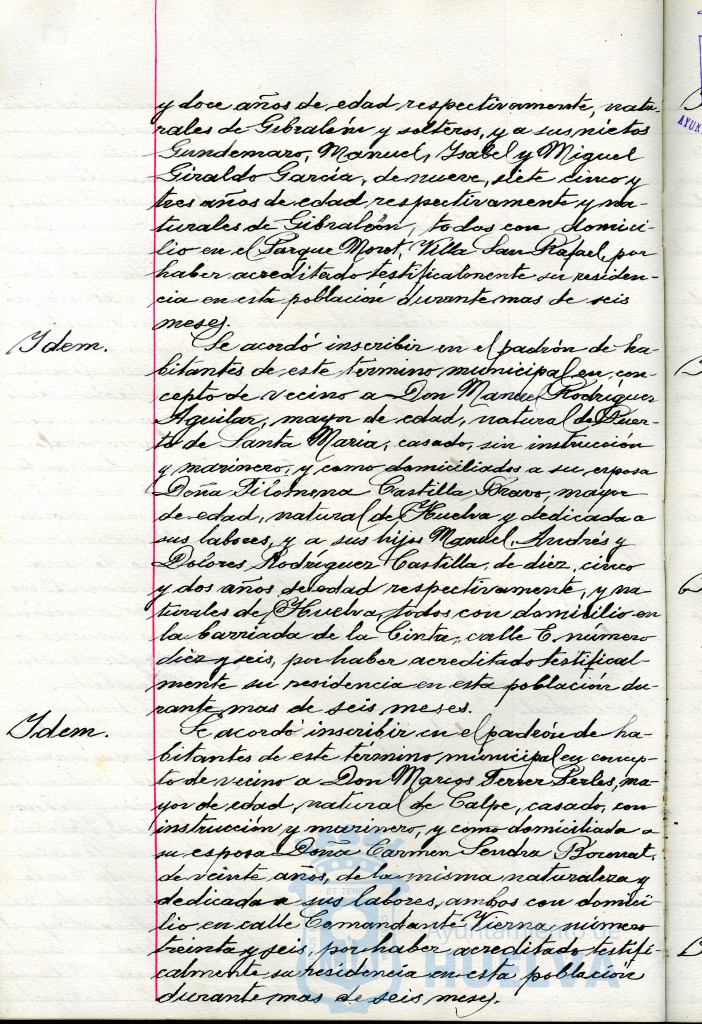 y doce años de edad respectivamente, natu-
rales de Gibraleón y solteros, y a sus nietos
Gundemaro, Manuel, Isabel y Miguel
Giraldo Garcia, de nueve, siete cinco y
tres años de edad respectivamente y na-
turales de Gibraleón, todos con domici-
lio en el Parque Moret, Villa San Rafael, por
haber acreditado testificalmente su residen-
cia en esta población durante mas de seis
meses.
Idem.
Se acordó inscribir en el padrón de ha-
bitantes de este término municipal en con-
cepto de vecino a Don Manuel Rodríguez
Aguilar, mayor de edad, natural de Puer-
to de Santa María, casado, sin instrucción
y marinero, y como domiciliados a su esposa
Doña Filomena Castilla Bravo, mayor
de edad, natural de Huelva y dedicada a
sus labores, y a sus hijos Manuel, Andrés y
Dolores Rodríguez Castilla, de diez, cinco
y dos años de edad respectivamente, y na-
turales de Huelva, todos con domicilio en
la barriada de la Cinta, calle E. numero
diez y seis, por haber acreditado testifical-
mente su residencia en esta población du-
rante mas de seis meses.
Idem.
Se acordó inscribir en el padrón de ha-
bitantes de este término municipal en concep-
to de vecino a Don Marcos Ferrer Perles, ma-
yor de edad, natural de Calpe, casado, con
instrucción y marinero, y como domiciliada a
su esposa Doña Carmen Sendra
de veinte años, de la misma naturaleza y
dedicada a sus labores, ambos con domici-
lio en calle Comandante Vierna número
treinta y seis, por haber acreditado testifi-
calmente su residencia en esta población
durante mas de seis meses.
Ayuntamiento de
HUELVA